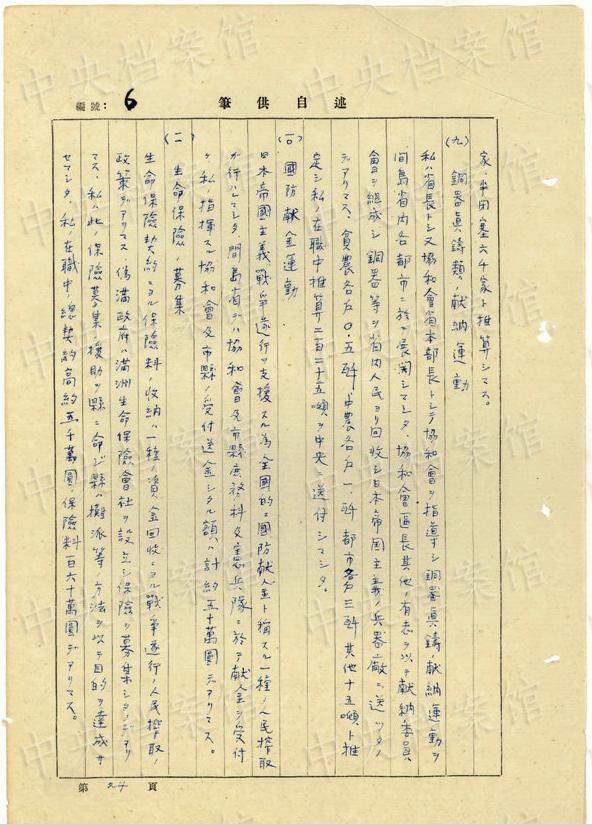 中央档案馆
編號: 6
筆供自述
家、半田墓六千家ト推算シマス。
(九) 銅器眞鋳類ノ献納運動
私ハ省長トシ又協和會省本部長トシテ協和會ヲ指導シ銅器眞鋳ノ献納運動ヲ
間島省內各都市ニ於テ展開シマシタ、協和會區長其他ノ有志ヲ以テ献納委員
會ヲ組成シ銅器等ヲ省內人民ヨリ回收シ日本帝国主義ノ兵器廠ニ送ッタノ
デアリマス、貧農各戶〇.五瓩 中農各戶一瓩 都市各戶三瓩 其他十五噸ト推
定シ私ノ在職中推算二百二十五噸ヲ中央ニ送付シマシタ。
(一〇) 國防献金運動
日本帝國主義戰爭遂行ヲ支援スル為全國的ニ國防献金ト稱スル一種ノ人民搾取
ガ行ハレマシタ、間島省デハ協和會及市縣庶務科及憲兵隊ニ於テ献金ヲ受付
ケ私ノ指揮スル協和會及市縣ノ受付送金シタル額ハ計約五十萬圓デアリマス。
(二) 生命保險ノ募集
生命保險契約ニヨル保險料ノ收納ハ一種ノ資金回收ニヨル戰爭遂行ノ人民搾取ノ
政策デアリマス、偽滿政府ハ滿洲生命保險會社ヲ設立シ保險ヲ募集シタノデアリ
マス、私ハ此ノ保險募集ノ援助ヲ縣ニ命ジ縣ハ樹派等ノ方法ヲ以テ目的ヲ達成サ
セマシタ、私ノ在職中ノ總契約高約五千萬圓、保險料一百六十萬圓デアリマス。
第 24 頁